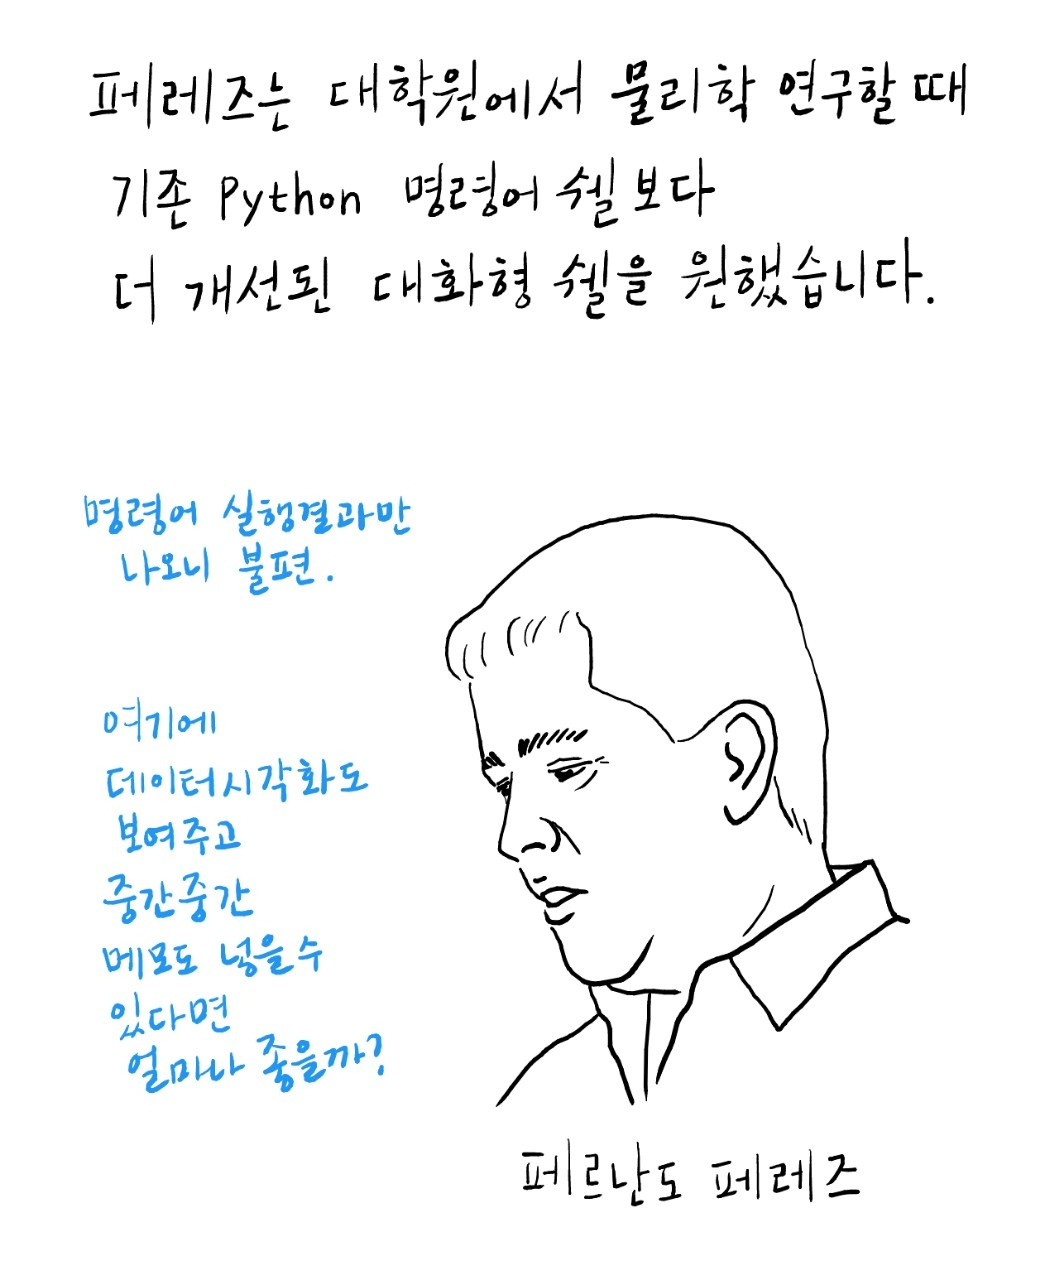 페레즈는 대학원에서 물리학 연구할 때
기존 Python 명령어 쉘보다
더 개선된 대화형 쉘을 원했습니다.
명령어 실행결과만
나오니 불편.
여기에
데이터시각화도
보여주고
중간중간
메모도 넣을수
있다면
얼마나 좋을까?
페르난도 페레즈